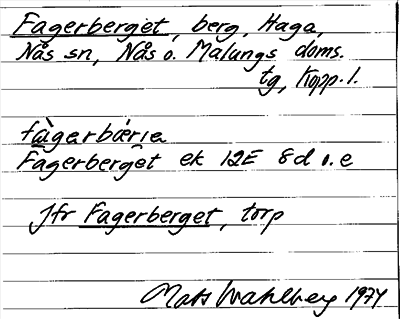 Fagerberget, berg, Haga,
Nås sn, Nås o. Malungs doms.
tg, Kopp. l.
fàgerbærıe
Fagerberget ek 12E 8d o. e
Jfr Fagerberget, torp
Mats Wahlberg 1974